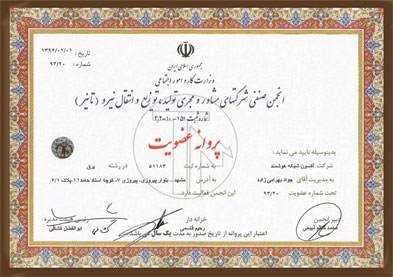 تاریخ : ۱۳۹۶/۰۱/۰۱
شماره : ۹۳/۲۰
جمهوری اسلامی ایران
وزارت کار و امور اجتماعی
انجمن صنفی شرکتهای مشاور و مجری تولید، توزیع و انتقال نیرو (تاتیر)
شماره ثبت
پروانه عضویت
بدینوسیله تایید می نماید :
شرکت آکسون شبانه هوشمند به شماره ثبت ۵۱۱۸۳ در رشته برق
به مدیریت آقای جواد بهرامی زاده به آدرس مشهد - بلوار پیروزی، پیروزی ۷، کوچه استاد حامد ۱۱، پلاک ۲/۱
تحت شماره عضویت ۹۳/۲۰ این انجمن فعالیت دارد.
دبیر انجمن خزانه دار رئیس هیئت مدیره
محمد رحیم قاسمی ابوالفضل
اعتبار این پروانه از تاریخ صدور به مدت یک سال می باشد